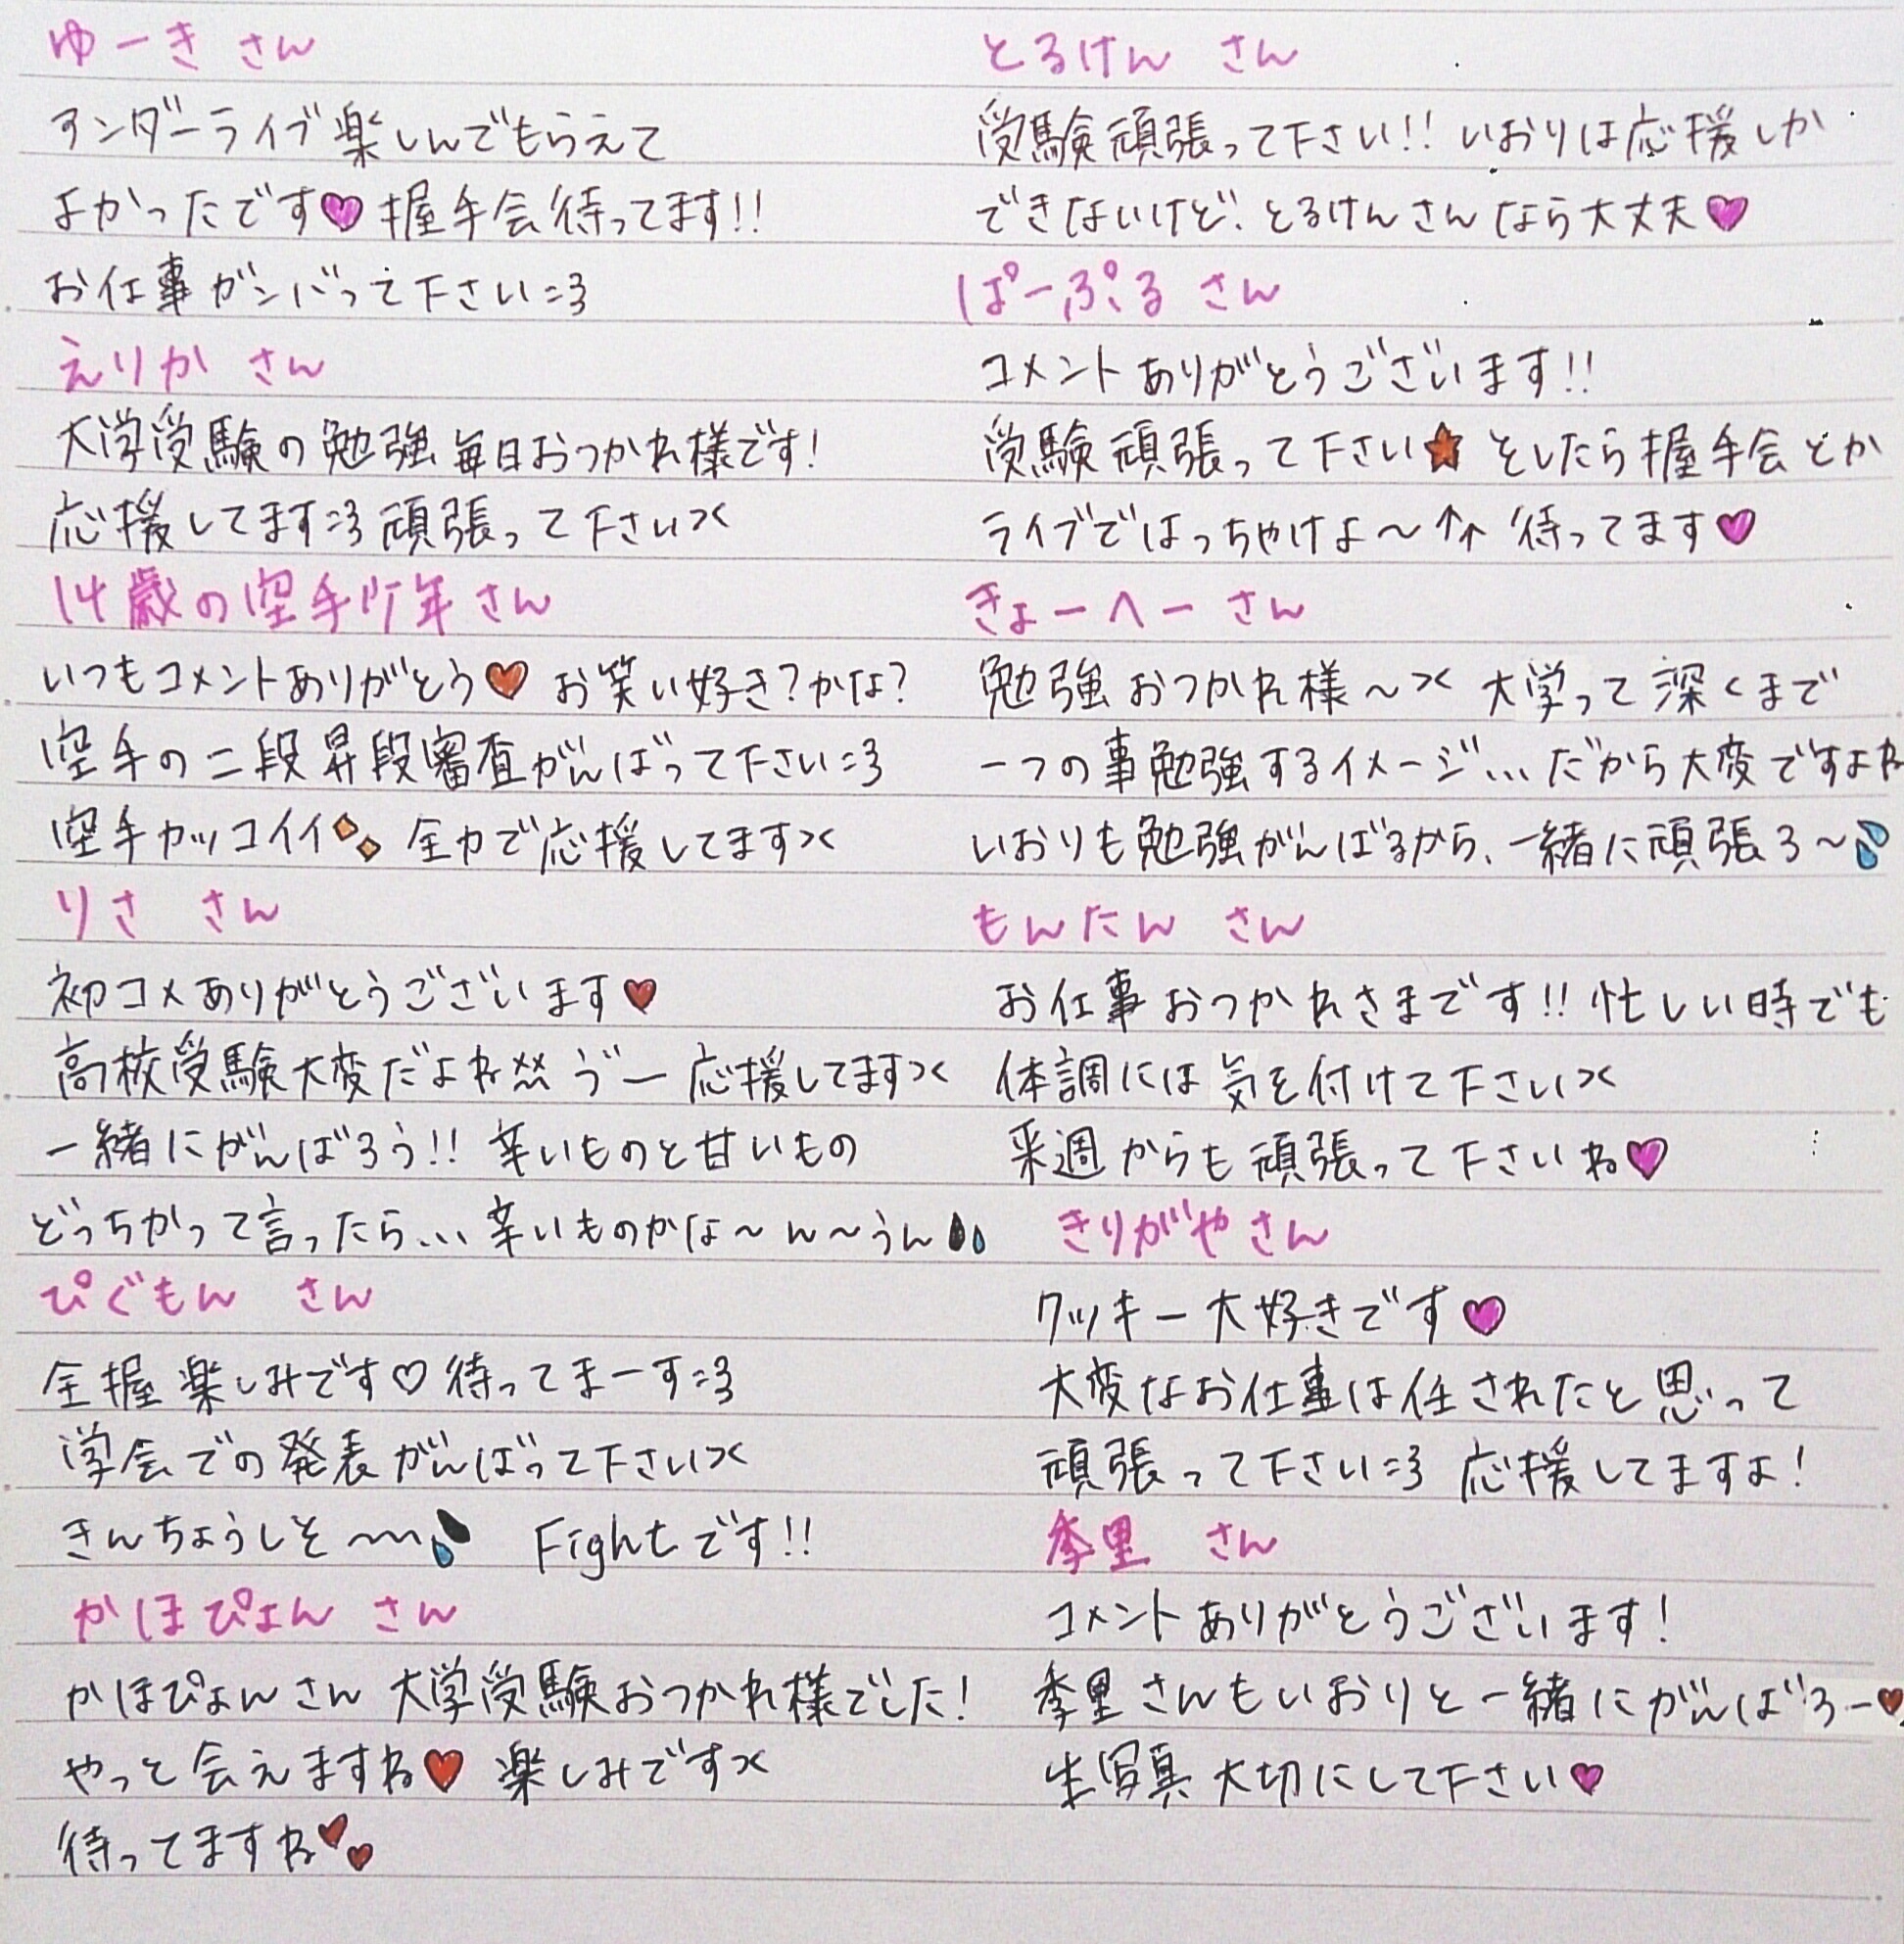 ゆーき さん
アンダーライブ楽しんでもらえて
よかったです♥握手会待ってます!!
お仕事ガンバって下さい=3
えりか さん
大学受験の勉強毎日おつかれ様です!
応援してます=3頑張って下さい><
14歳の空手少年さん
いつもコメントありがとう♥ お笑い好き?かな?
空手の二段昇段審査がんばって下さい=3
空手カッコイイ 全力で応援してます><
りさ さん
初コメありがとうございます♥
高校受験大変だよね×× ゔー 応援してます><
一緒にがんばろう!! 辛いものと甘いもの
どっちかって言ったら... 辛いものかな〜ん〜うん
ぴぐもん さん
全握楽しみです♡待ってまーす=3
学会での発表がんばって下さい><
きんちょうしそ〜〜 Fightです!!
かほぴょん さん
かほぴょんさん 大学受験おつかれ様でした!
やっと会えますね♥ 楽しみです><
待ってますね♥♥
とるけん さん
受験頑張って下さい!! いおりは応援しか
できないけど、とるけんさんなら大丈夫♥
ぱーぷる さん
コメントありがとうございます!!
受験頑張って下さい★ そしたら握手会とか
ライブではっちゃけよ〜↑↑ 待ってます♥
きょーへー さん
勉強おつかれ様〜>< 大学って深くまで
一つの事勉強するイメージ...だから大変ですよね
いおりも勉強がんばるから、一緒に頑張ろ〜
もんたん さん
お仕事おつかれさまです!! 忙しい時でも
体調には気を付けて下さい><
来週からも頑張って下さいね♥
きりがやさん
クッキー大好きです♥
大変なお仕事は任されたと思って
頑張って下さい=3 応援してますよ!
季里 さん
コメントありがとうございます!
季里さんもいおりと一緒にがんばろー♥
生写真大切にして下さい♥